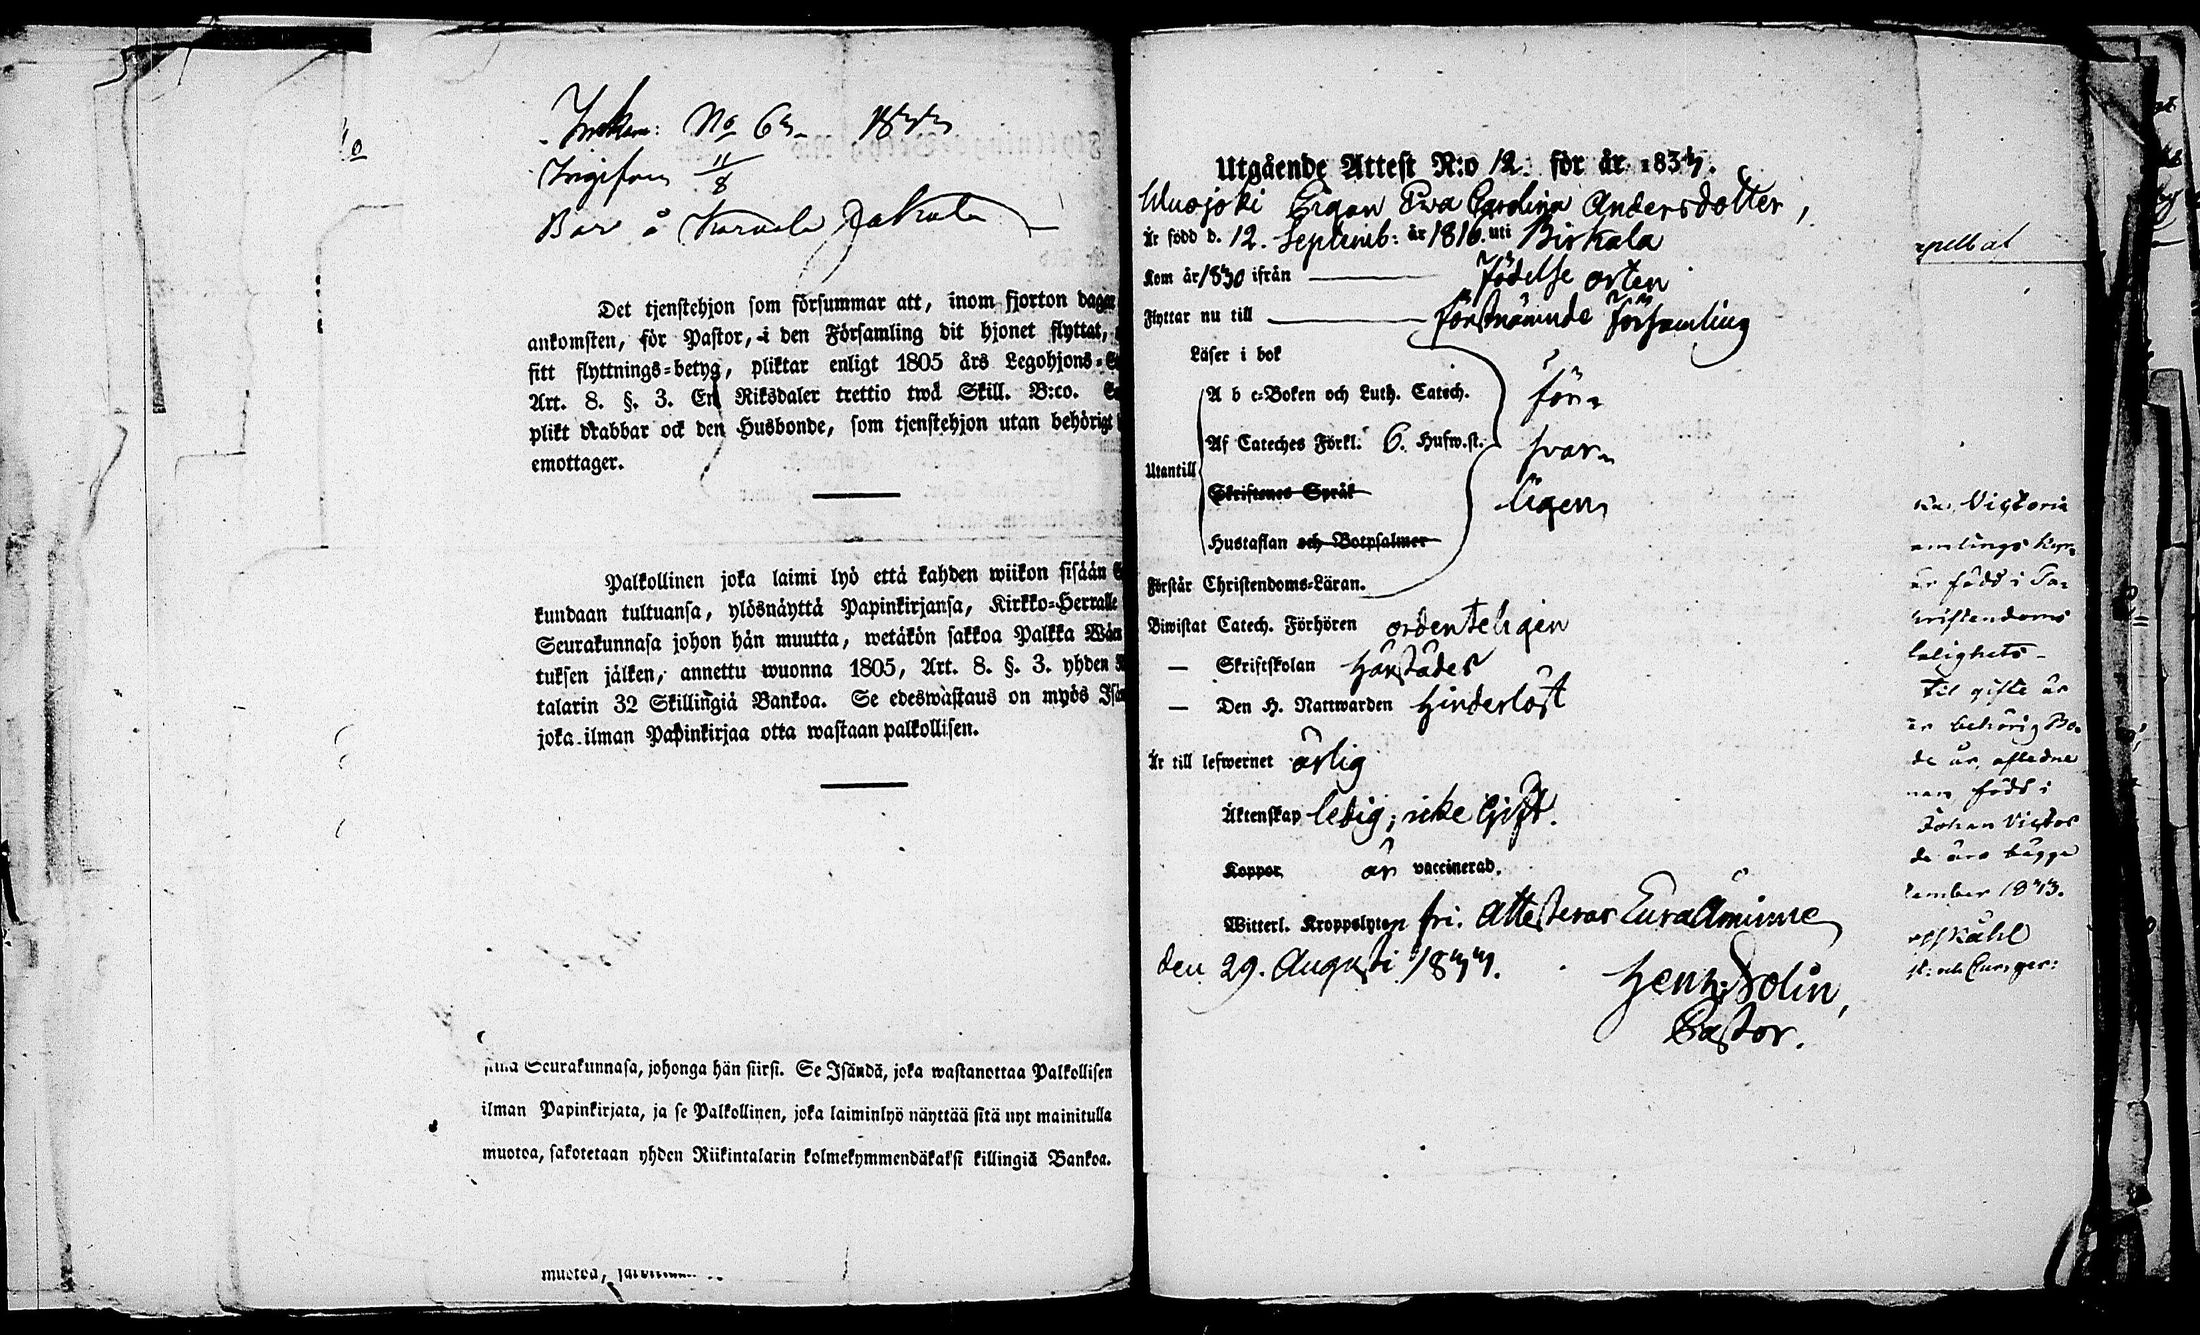 Inkom: No 63
Ingifven 11/8
Bor å
Det tjenstehjon som försummar att, inom fjorton dagar
ankomsten, för Pastor, i den Församling dit hjonet flyttat,
sitt flyttnings=betyg, pliktar enligt 1805 års Legohjons=
Art. 8. §. 3. En Riksdaler trettio twå Skill. B:co.
plikt drabbar ock den Husbonde, som tjenstehjon utan behörigt
emottager.
Palkollinen joka laimi lyö että kahden wiikon sisään
kundaan tultuansa, ylösnäyttä Papinkirjansa, Kirkko=Herralle
Seurakunnasa johon hän muutta, wetäkön sakkoa Palkka
tuksen jälken, annettu wuonna 1805, Art. 8. §. 3. yhden
talarin 32 Skillingiä Bankoa. Se edeswastaus on myös
joka ilman Papinkirjaa otta wastaan palkollisen.
Seurakunnasa, johonga hän siirsi. Se Isändä, joka wastanottaa Palkollisen
ilman Papinkirjata, ja se Palkollinen, joka laiminlyö näyttää sitä nyt mainitulla
muotoa, sakotetaan yhden Riikintalarin kolmekymmendäkaksi killingiä Bankoa.
muotoa,
Utgående Attest N:o 12. för år 183
Pigan Ewa Carolina Andersdotter,
Är född d. 12. Septemb: år 1816. uti Birkala
Kom år ifrån födelse orten
Flyttar nu till förstnämnde församling
Läser i bok
A b c=Boken och Luth. Catech. för=
Af Cateches Förkl. 6. Hufw.st. svar=
Utantill
Skriftenes Språk ligen
Hustaflan och Botpsalmer
Förstår Christendoms=Läran.
Biwistat Catech. Förhören ordenteligen
— Skriftskolan härstädes
— Den H. Nattwarden hinderlöst
Är till lefwernet ärlig
Äktenskap ledig; icke gift.
Koppor är vaccinerad.
Witterl. Kroppslyten fri. Attesterar Eura Åminne
den 29. Augusti
Henr: Solin,
Pastor.
Victoria
är född i
ristendoms
Til gifte är
är behörig
de är, afledne
född i
Johan Victor
de äro bägge
tember